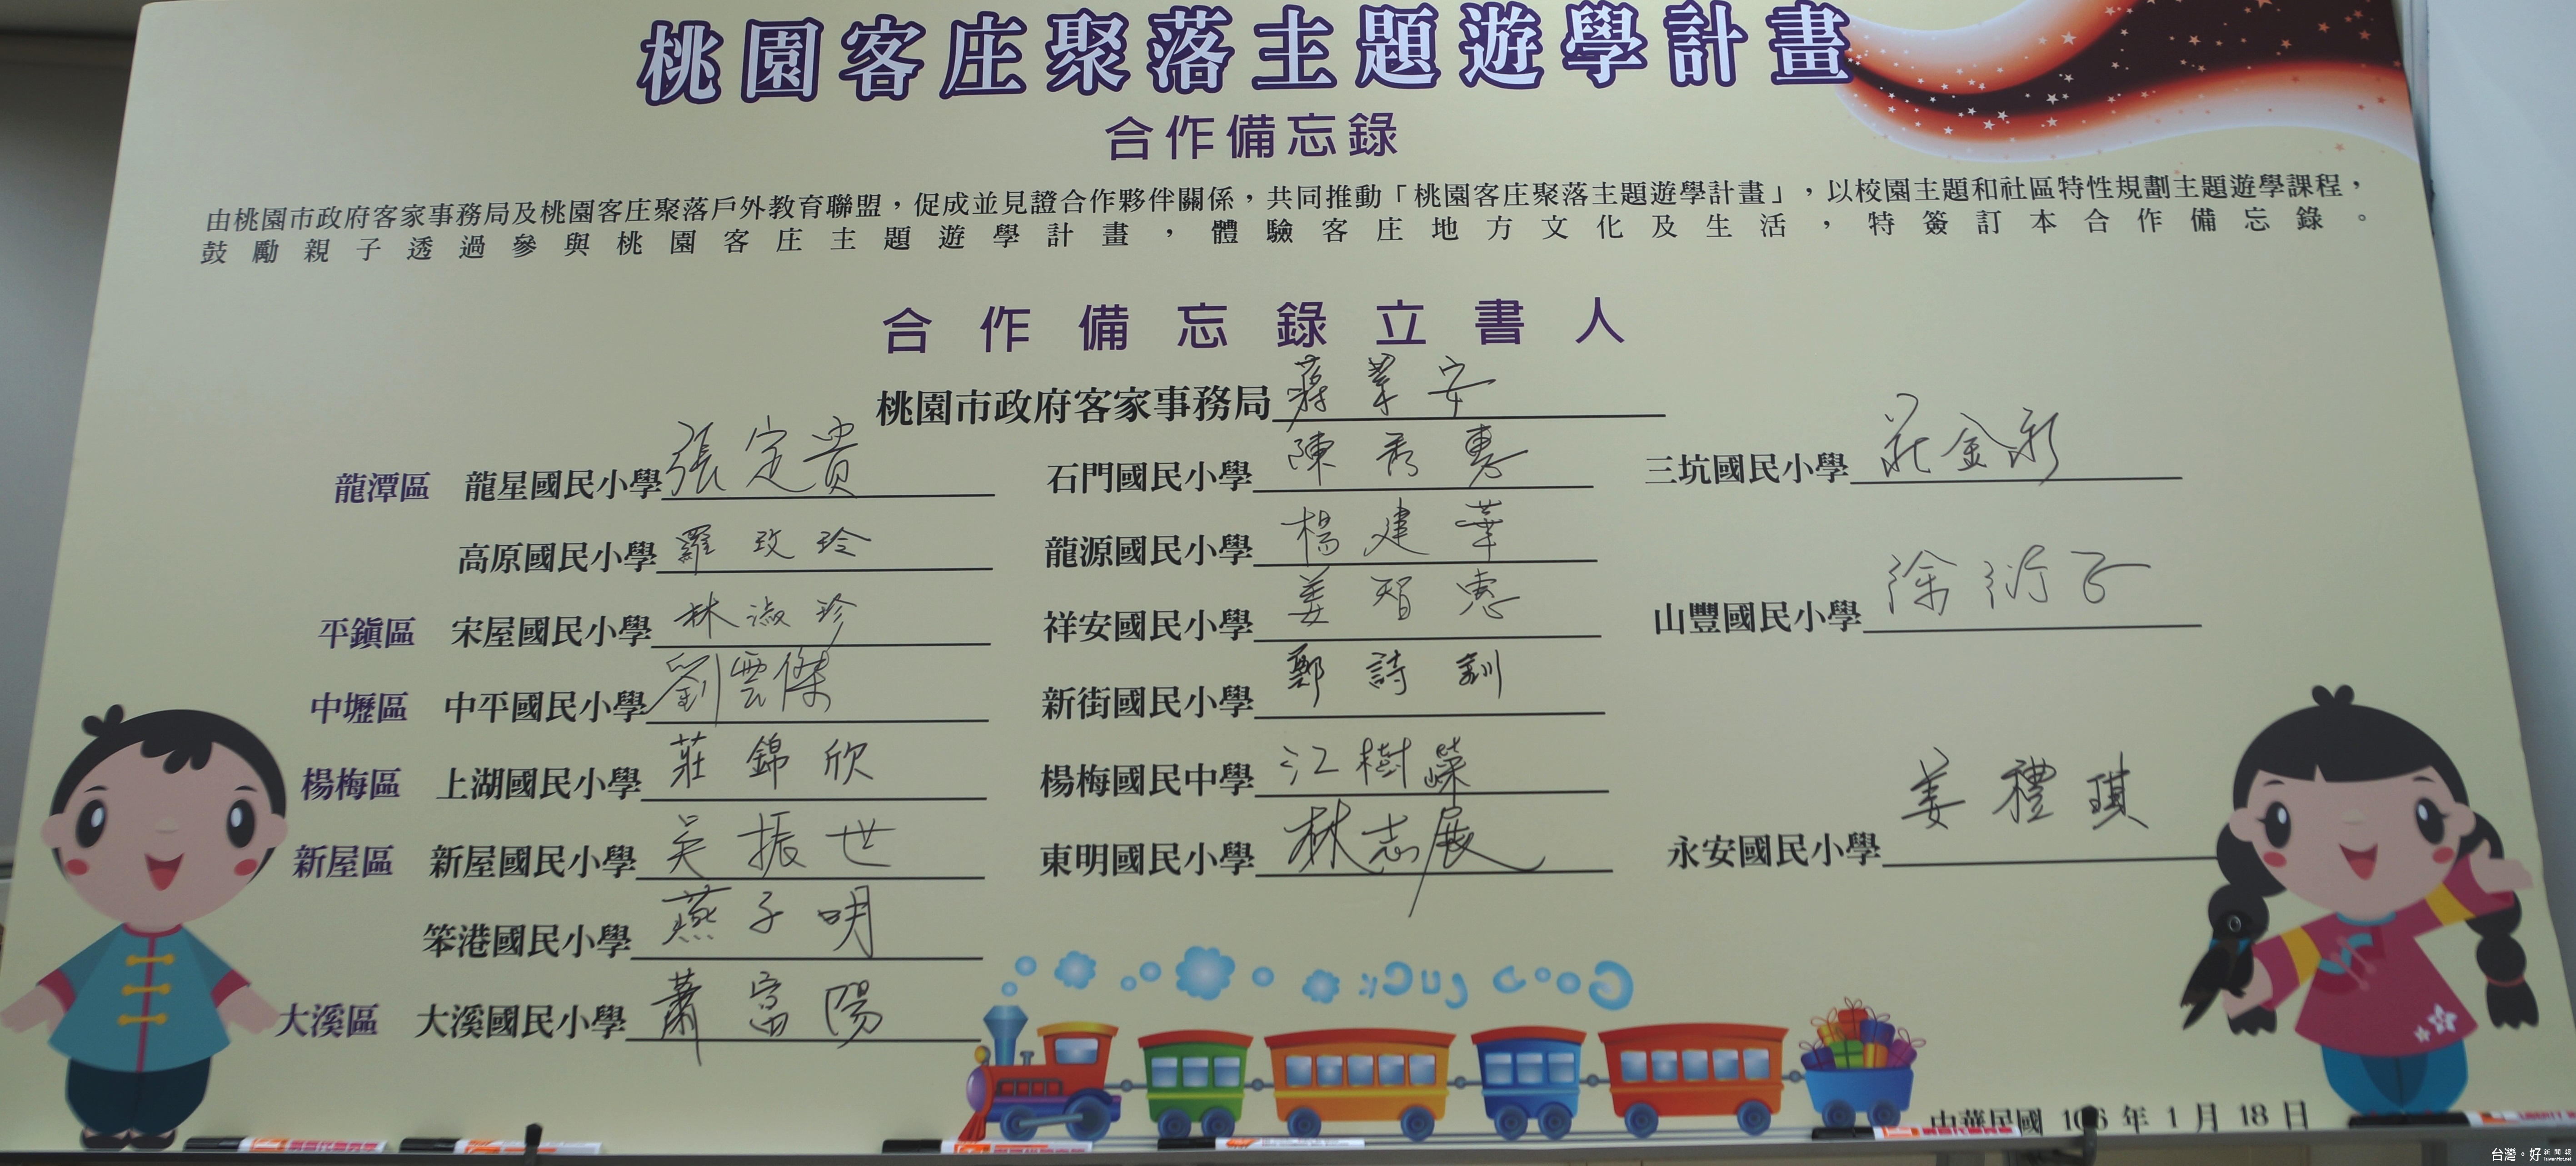 桃園客庄聚落主題遊學計畫
合作備忘錄
由桃園市政府客家事務局及桃園客庄聚落戶外教育聯盟，促成並見證合作夥伴關係，共同推動「桃園客庄聚落主題遊學計畫」，以校園主題和社區特性規劃主題遊學課程，
鼓勵親子透過參與桃園客庄主題遊學計畫，體驗客庄地方文化及生活，特簽訂本合作備忘錄。
合作備忘錄立書人
桃園市政府客家事務局 蔣絜安
龍潭區 龍星國民小學 張定貴 石門國民小學 陳秀惠 三坑國民小學 莊金彩
高原國民小學 羅玫玲 龍源國民小學 楊建華
平鎮區 宋屋國民小學 林淑珍 祥安國民小學 姜智惠 山豐國民小學 涂衍子
中壢區 中平國民小學 劉雲傑 新街國民小學 鄭詩釧
楊梅區 上湖國民小學 莊錦欣 楊梅國民中學 江樹嶸
新屋區 新屋國民小學 吳振世 東明國民小學 林志展 永安國民小學 姜禮琪
笨港國民小學 燕子明
大溪區 大溪國民小學 蕭富陽
Good Luck
中華民國 106 年 1 月 18 日
台灣。好新聞報
TaiwanHot.net